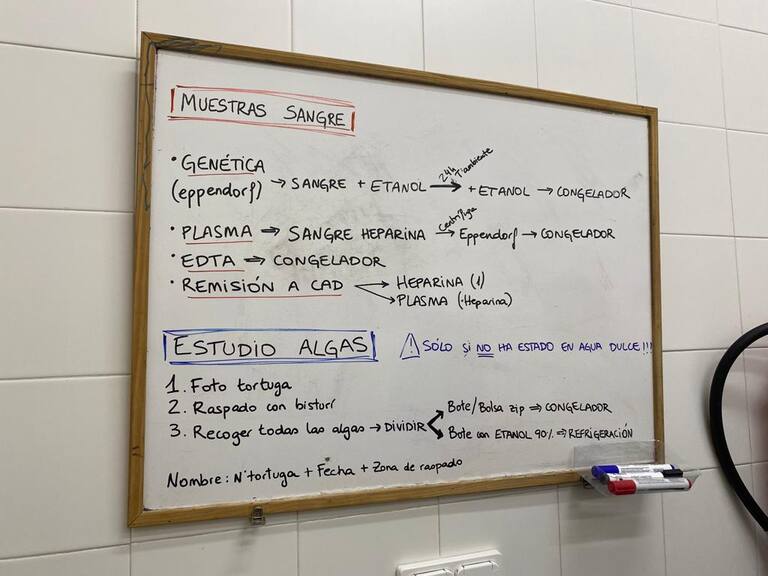 MUESTRAS SANGRE
• GENÉTICA (eppendorf) → SANGRE + ETANOL → 24h Tªambiente + ETANOL → CONGELADOR
• PLASMA ⇒ SANGRE HEPARINA → Centrífuga Eppendorf → CONGELADOR
• EDTA ⇒ CONGELADOR
• REMISIÓN A CAD → HEPARINA (1)
→ PLASMA (·Heparina)
ESTUDIO ALGAS
⚠ SÓLO SI NO HA ESTADO EN AGUA DULCE!!!
1. Foto tortuga
2. Raspado con bisturí
3. Recoger todas las algas → DIVIDIR
Bote/Bolsa zip ⇒ CONGELADOR
Bote con ETANOL 90% ⇒ REFRIGERACIÓN
Nombre: Nº tortuga + Fecha + Zona de raspado